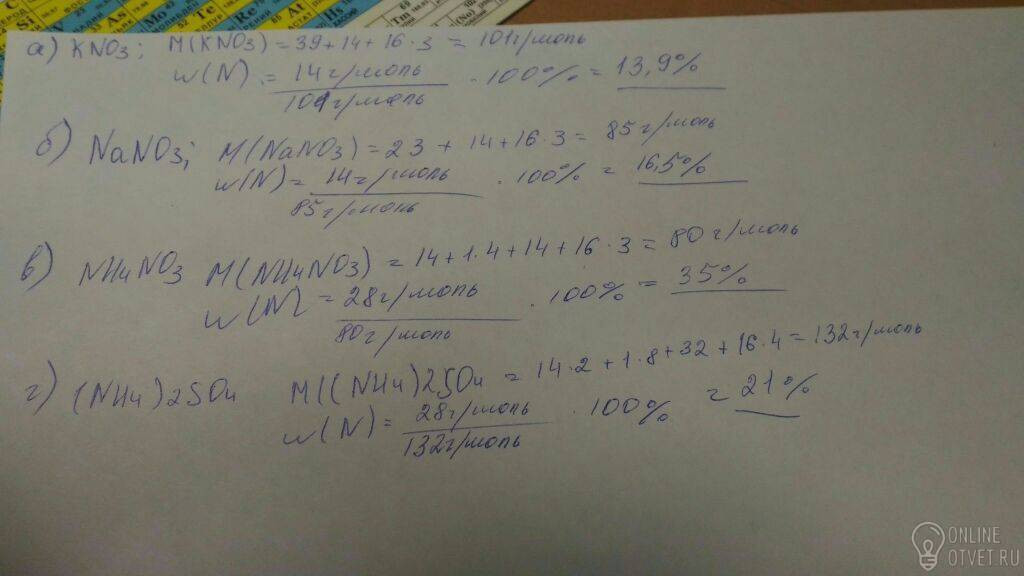 а) KNO3; M(KNO3) = 39 + 14 + 16 · 3 = 101 г/моль
w(N) = 14 г/моль / 101 г/моль · 100% = 13,9%
б) NaNO3; M(NaNO3) = 23 + 14 + 16 · 3 = 85 г/моль
w(N) = 14 г/моль / 85 г/моль · 100% = 16,5%
в) NH4NO3 M(NH4NO3) = 14 + 1·4 + 14 + 16 · 3 = 80 г/моль
w(N) = 28 г/моль / 80 г/моль · 100% = 35%
г) (NH4)2SO4 M((NH4)2SO4 = 14·2 + 1·8 + 32 + 16·4 = 132 г/моль
w(N) = 28 г/моль / 132 г/моль · 100% = 21%
ONLINE
OTVET.RU